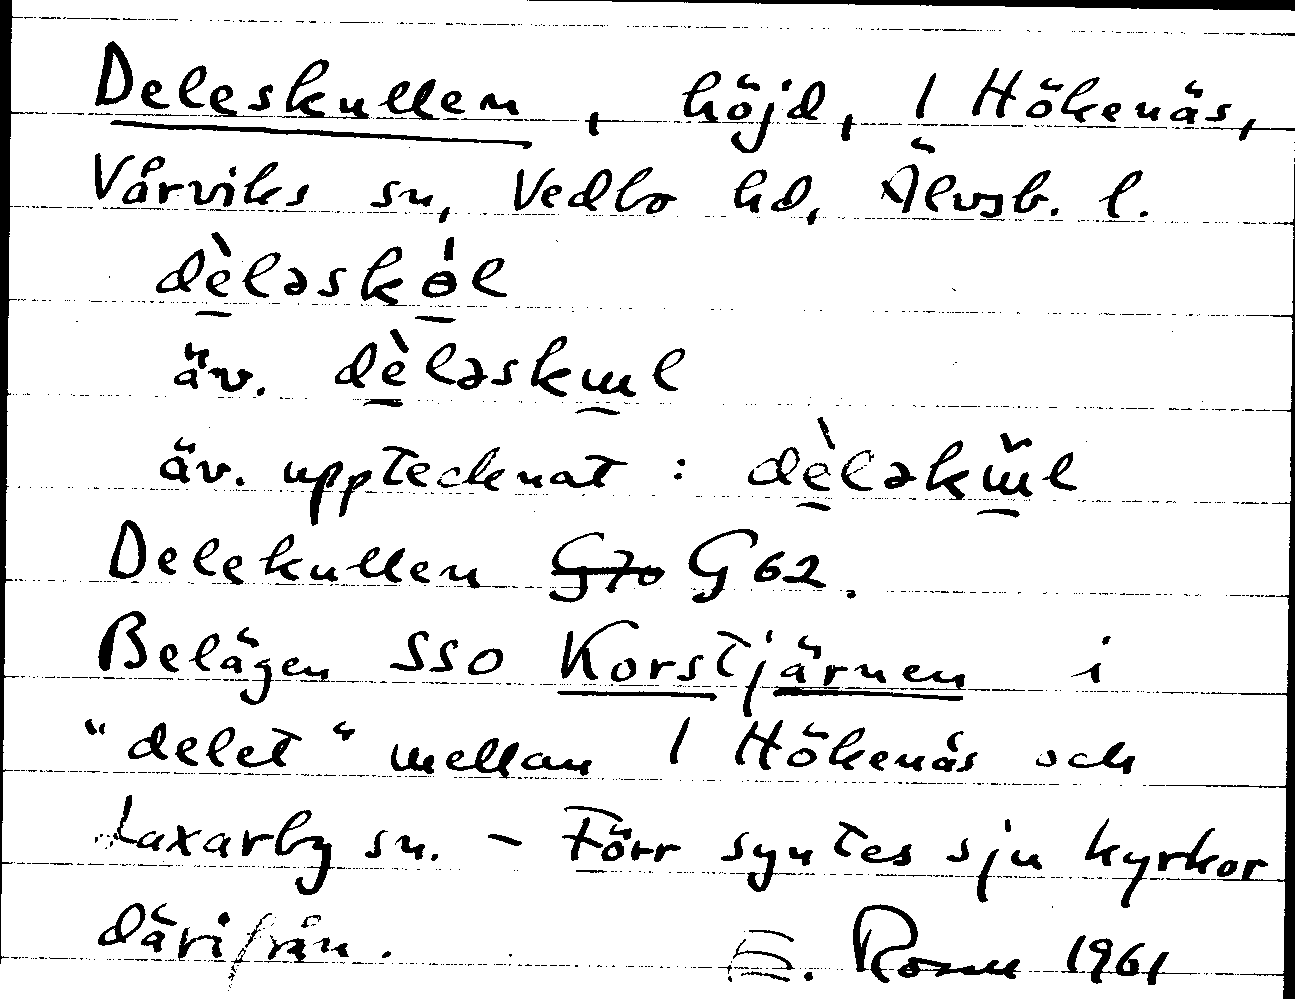 Deleskullen, höjd, 1 Hökenäs,
Vårviks sn, Vedbo hd, Älvsb. l.
dè̱ləskö̱́l
äv. dè̱ləsku̱l
äv. upptecknat : dè̱ləkŭ̱l
Delekullen G70 G62.
Belägen SSO Korstjärnen i
"delet" mellan 1 Hökenäs och
Laxarby sn. - Förr syntes sju kyrkor
därifrån. E. Rosell 1961